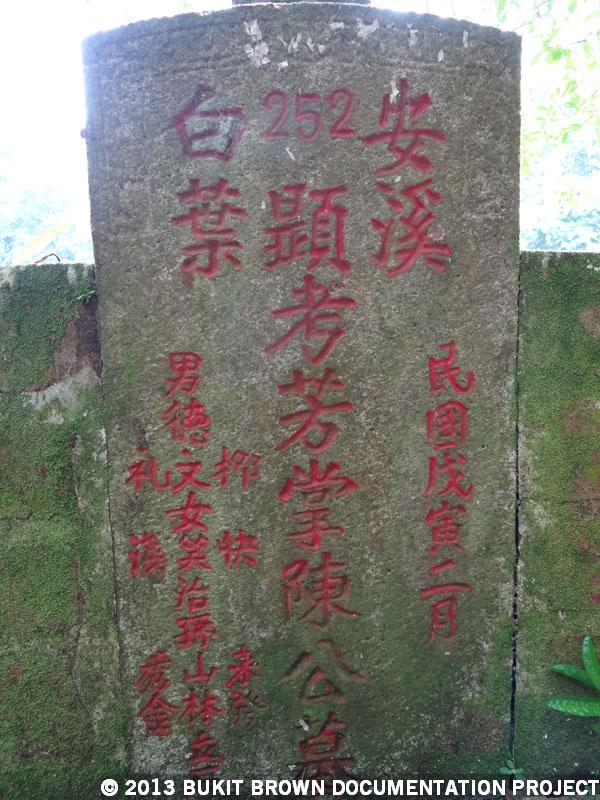 安溪
白葉
252
民國戊寅二月
顯考芳掌陳公墓
柳快
男德文女笑治孫山林立
礼
金
© 2013 BUKIT BROWN DOCUMENTATION PROJECT